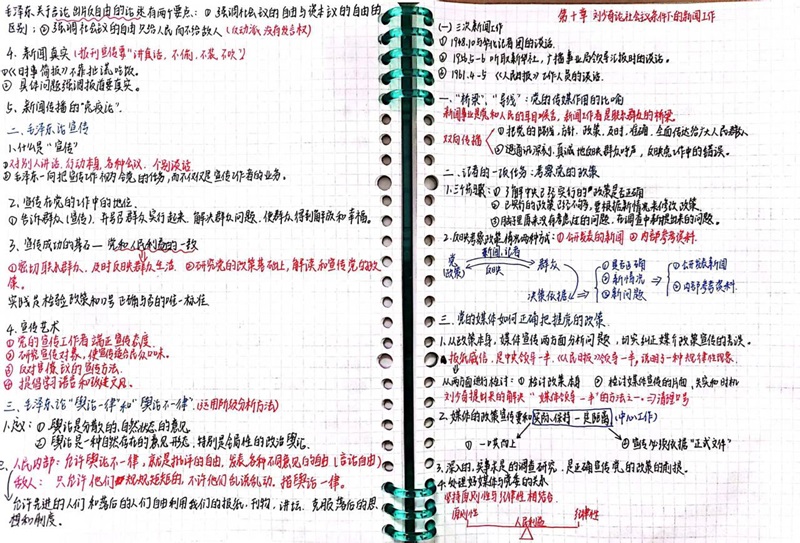 毛泽东关于言论出版自由的论述有两个要点：①强调社会议的自由与资本议的自由的
区别；②强调社会议的自由只给人民而不给敌人（反动派，没有发言权）
4.新闻真实（报刊宣传要“讲真话，不偷，不装，不吹”）
①《时事简报》不靠扯谎吃饭。
② 具体问题强调报道要真实。
5.新闻传播的“免疫论”。
二、毛泽东论宣传
1.什么是“宣传”
①对别人讲话、行动本身、各种会议、个别谈话
②毛泽东一向把宣传工作视为全党的任务，而不仅仅是宣传工作者的业务。
2.宣传在党的工作中的地位.
① 告诉群众（宣传），并号召群众实行起来，解决群众问题、使群众得到解放和幸福。
3.宣传成功的基石—党和人民利益的一致
①密切联系群众、及时反映群众生活 ②研究党的政策基础上，解读和宣传党的政
策。
实践是检验政策和口号正确与否的唯一标准
4.宣传艺术
①党的宣传工作者端正宣传态度
②研究宣传对象，使宣传适合民众口味。
③反对鲁莽式的宣传方法。
④提倡学习语言和改进文风。
三、毛泽东论“舆论一律”和“舆论不一律”.（运用阶级分析方法）
1.定义：①舆论是分散的、自然状态的意见
②舆论是一种自然存在的意见形态，特别是全局性的政治舆论。
2.人民内部：允许舆论不一律，就是批评的自由，发表各种不同意见的自由（言论自由）
敌人：只允许他们规规矩矩的，不许他们乱说乱动。指舆论一律。
允许先进的人们和落后的人们自由利用我们的报纸、刊物、讲坛，克服落后的思
想和制度。
第十章 刘少奇论社会议条件下的新闻工作
(一)三次新闻工作
① 1948.10与华北记者团的谈话.
② 1956.5-6 听取新华社，广播事业局领导汇报时的谈话.
③ 1961.4-5 《人民日报》工作人员的谈话.
一、“桥梁”、“导线”：党的传媒作用的比喻
新闻事业是党和人民的耳目喉舌，新闻工作者是联系群众的桥梁。
双向传播
① 把党的路线，方针，政策，及时，准确、全面传达给广大人民群众
② 通过记者深刻、真诚地反映群众呼声，反映党工作中的错误。
二、记者的一项任务：考察党的政策
1.三个步骤：①了解中央已实行的政策是否正确
② 已实行的政策已经不够，要根据新情况来修改政策
③ 助理原来没有考虑的问题，在调查中新提出来的问题。
2.反映考察政策情况两种方式：①公开发表的新闻 ②内部参考资料
新闻、记者
党（政策） 反映 群众
决策依据 ①是否正确 ②新情况 ③新问题
①公开发表新闻 ②内部参考资料
三、党的媒体如何正确把握党的政策
1.从政策本身，媒体宣传两方面分析问题，切实纠正媒介政策宣传的失误。
报纸威信，是中央领导一半，《人民日报》领导一半，说明了一种规律性现象.
从两方面进行检讨：① 检讨政策本身 ② 检讨媒体宣传的片面，失实和时机
刘少奇提出来的解决“媒体领导一半”的方法之一
2.媒体的政策宣传要和实际保持一定距离（中心工作）
② 宣传必须依据“正式文件”
3.深入的，实事求是的调查研究，是正确宣传党的政策的前提。
4.处理好媒体与党委的关系
坚持原则性与纪律性相结合.
原则性 纪律性
人民利益